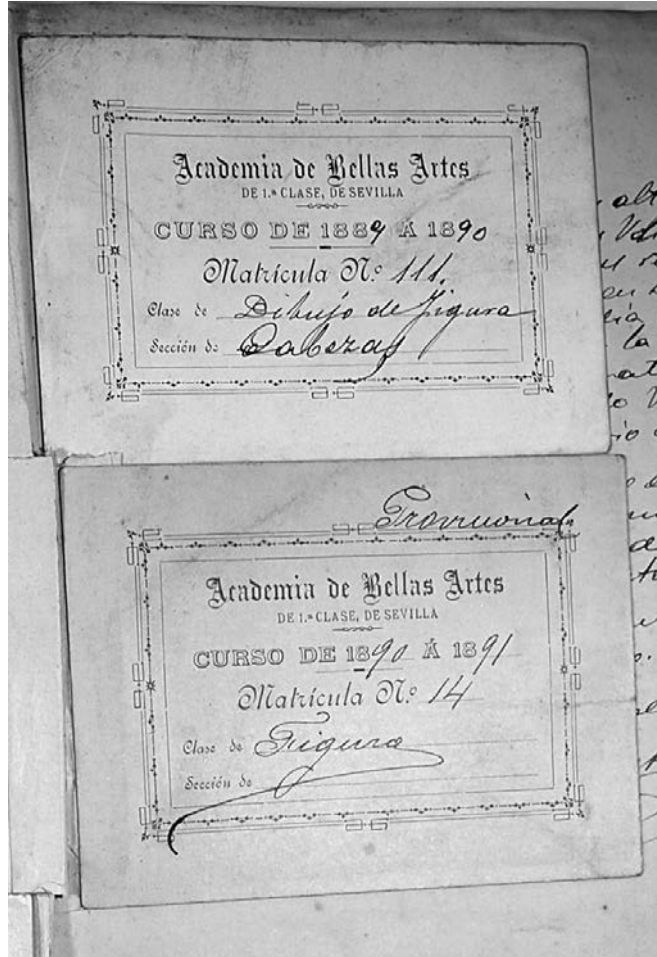 Academia de Bellas Artes
DE 1.ª CLASE, DE SEVILLA
CURSO DE 1889 A 1890
Matrícula N.º 111.
Clase de Dibujo de Figura
Sección de Cabezas
Provisional
Academia de Bellas Artes
DE 1.ª CLASE, DE SEVILLA
CURSO DE 1890 Á 1891
Matrícula N.º 14
Clase de Figura
Sección de